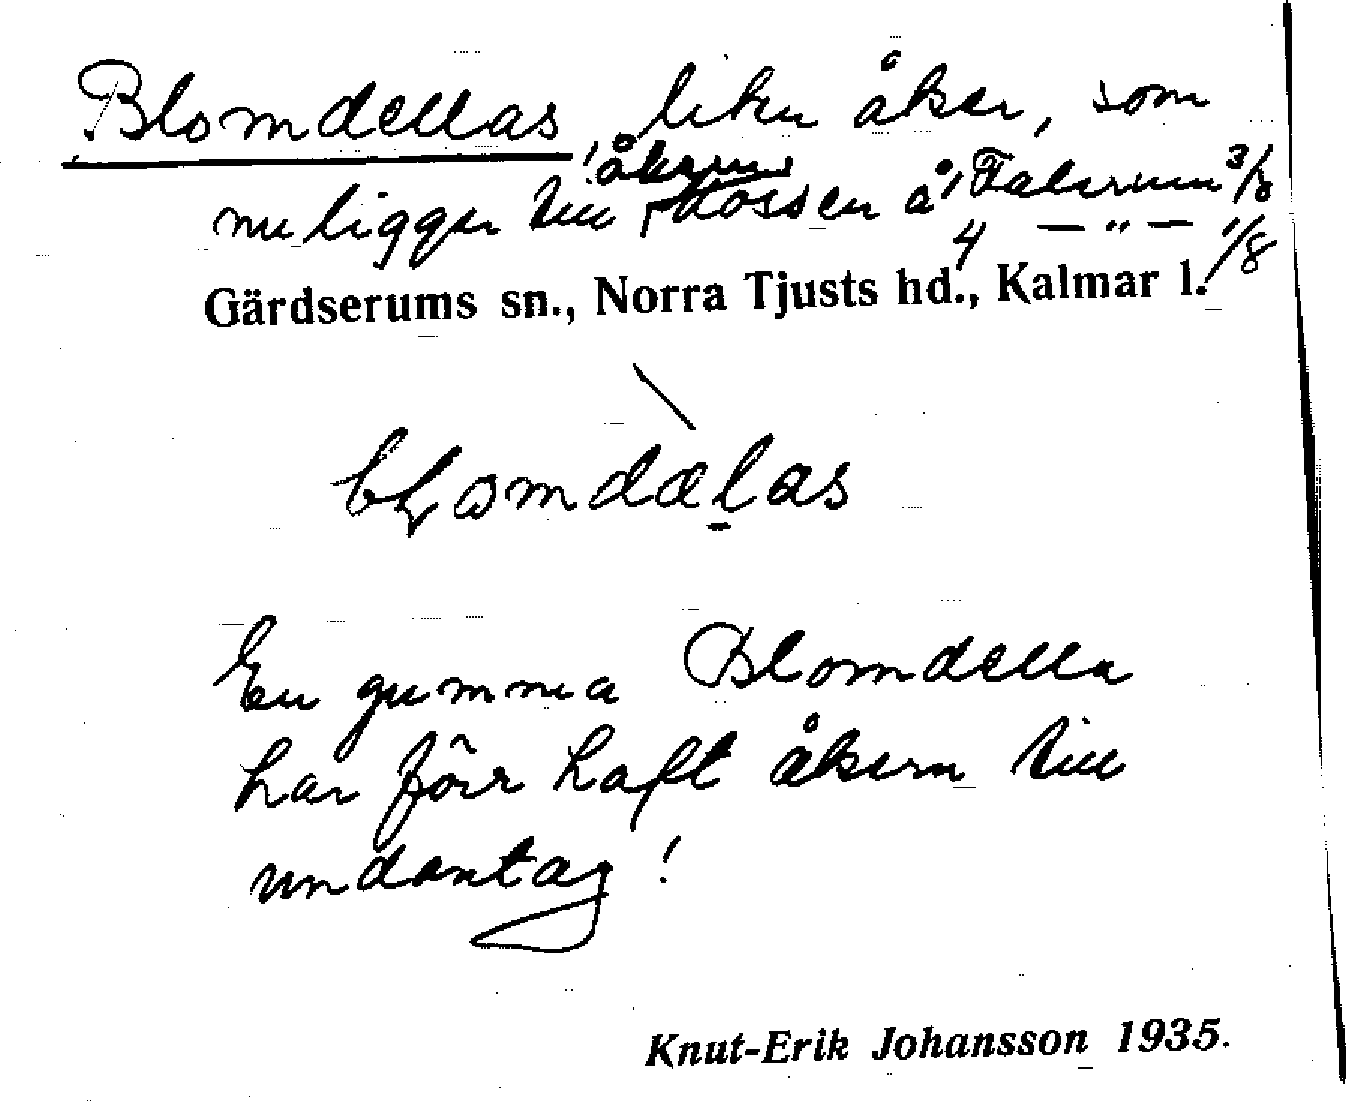 Blomdellas, liten åker, som
åkrarna
nu ligger till Kossen å Falerum 3/8
4 — " — 1/8
Gärdserums sn., Norra Tjusts hd., Kalmar l.
blomdælas
En gumma Blomdella
har förr haft åkern till
undantag!
Knut-Erik Johansson 1935.